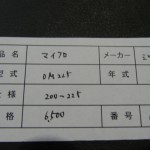 品名 マイクロ メーカー
型式 OM225 年式
仕様 200～225
価格 6,500 番号